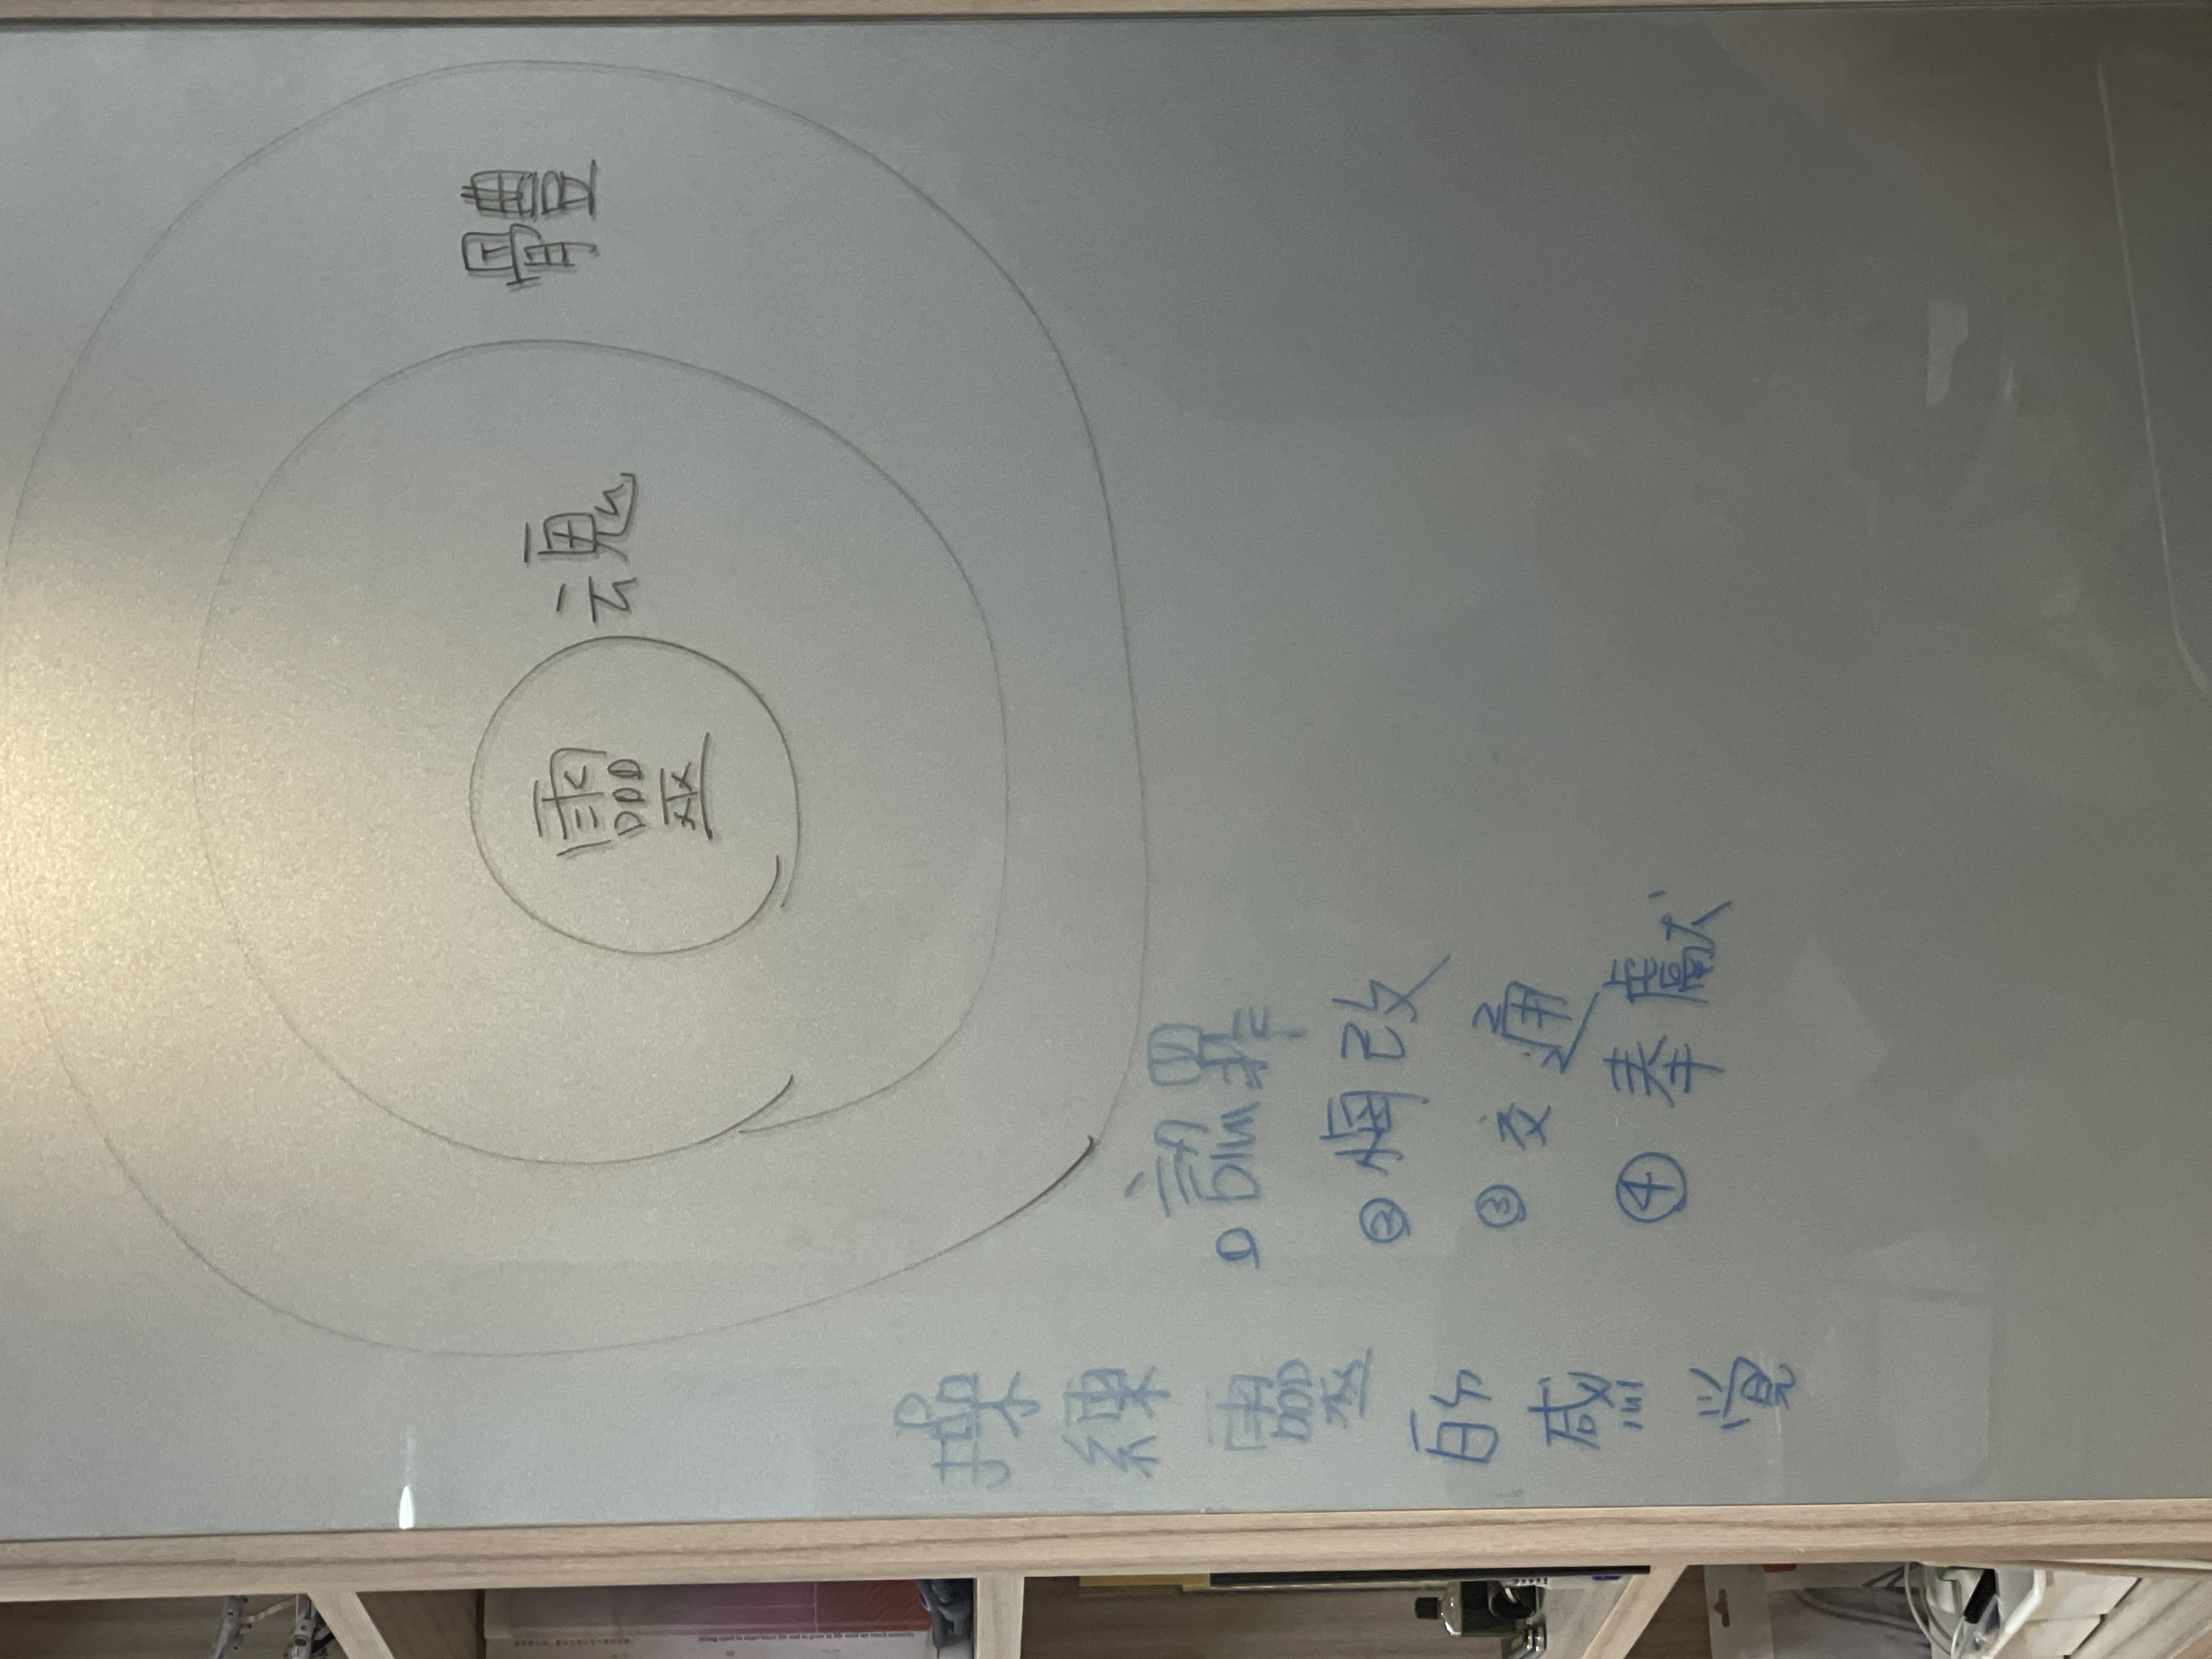 靈 魂 體
操練靈的感覺
① 認罪
② 悔改
③ 交通
④ 奉獻